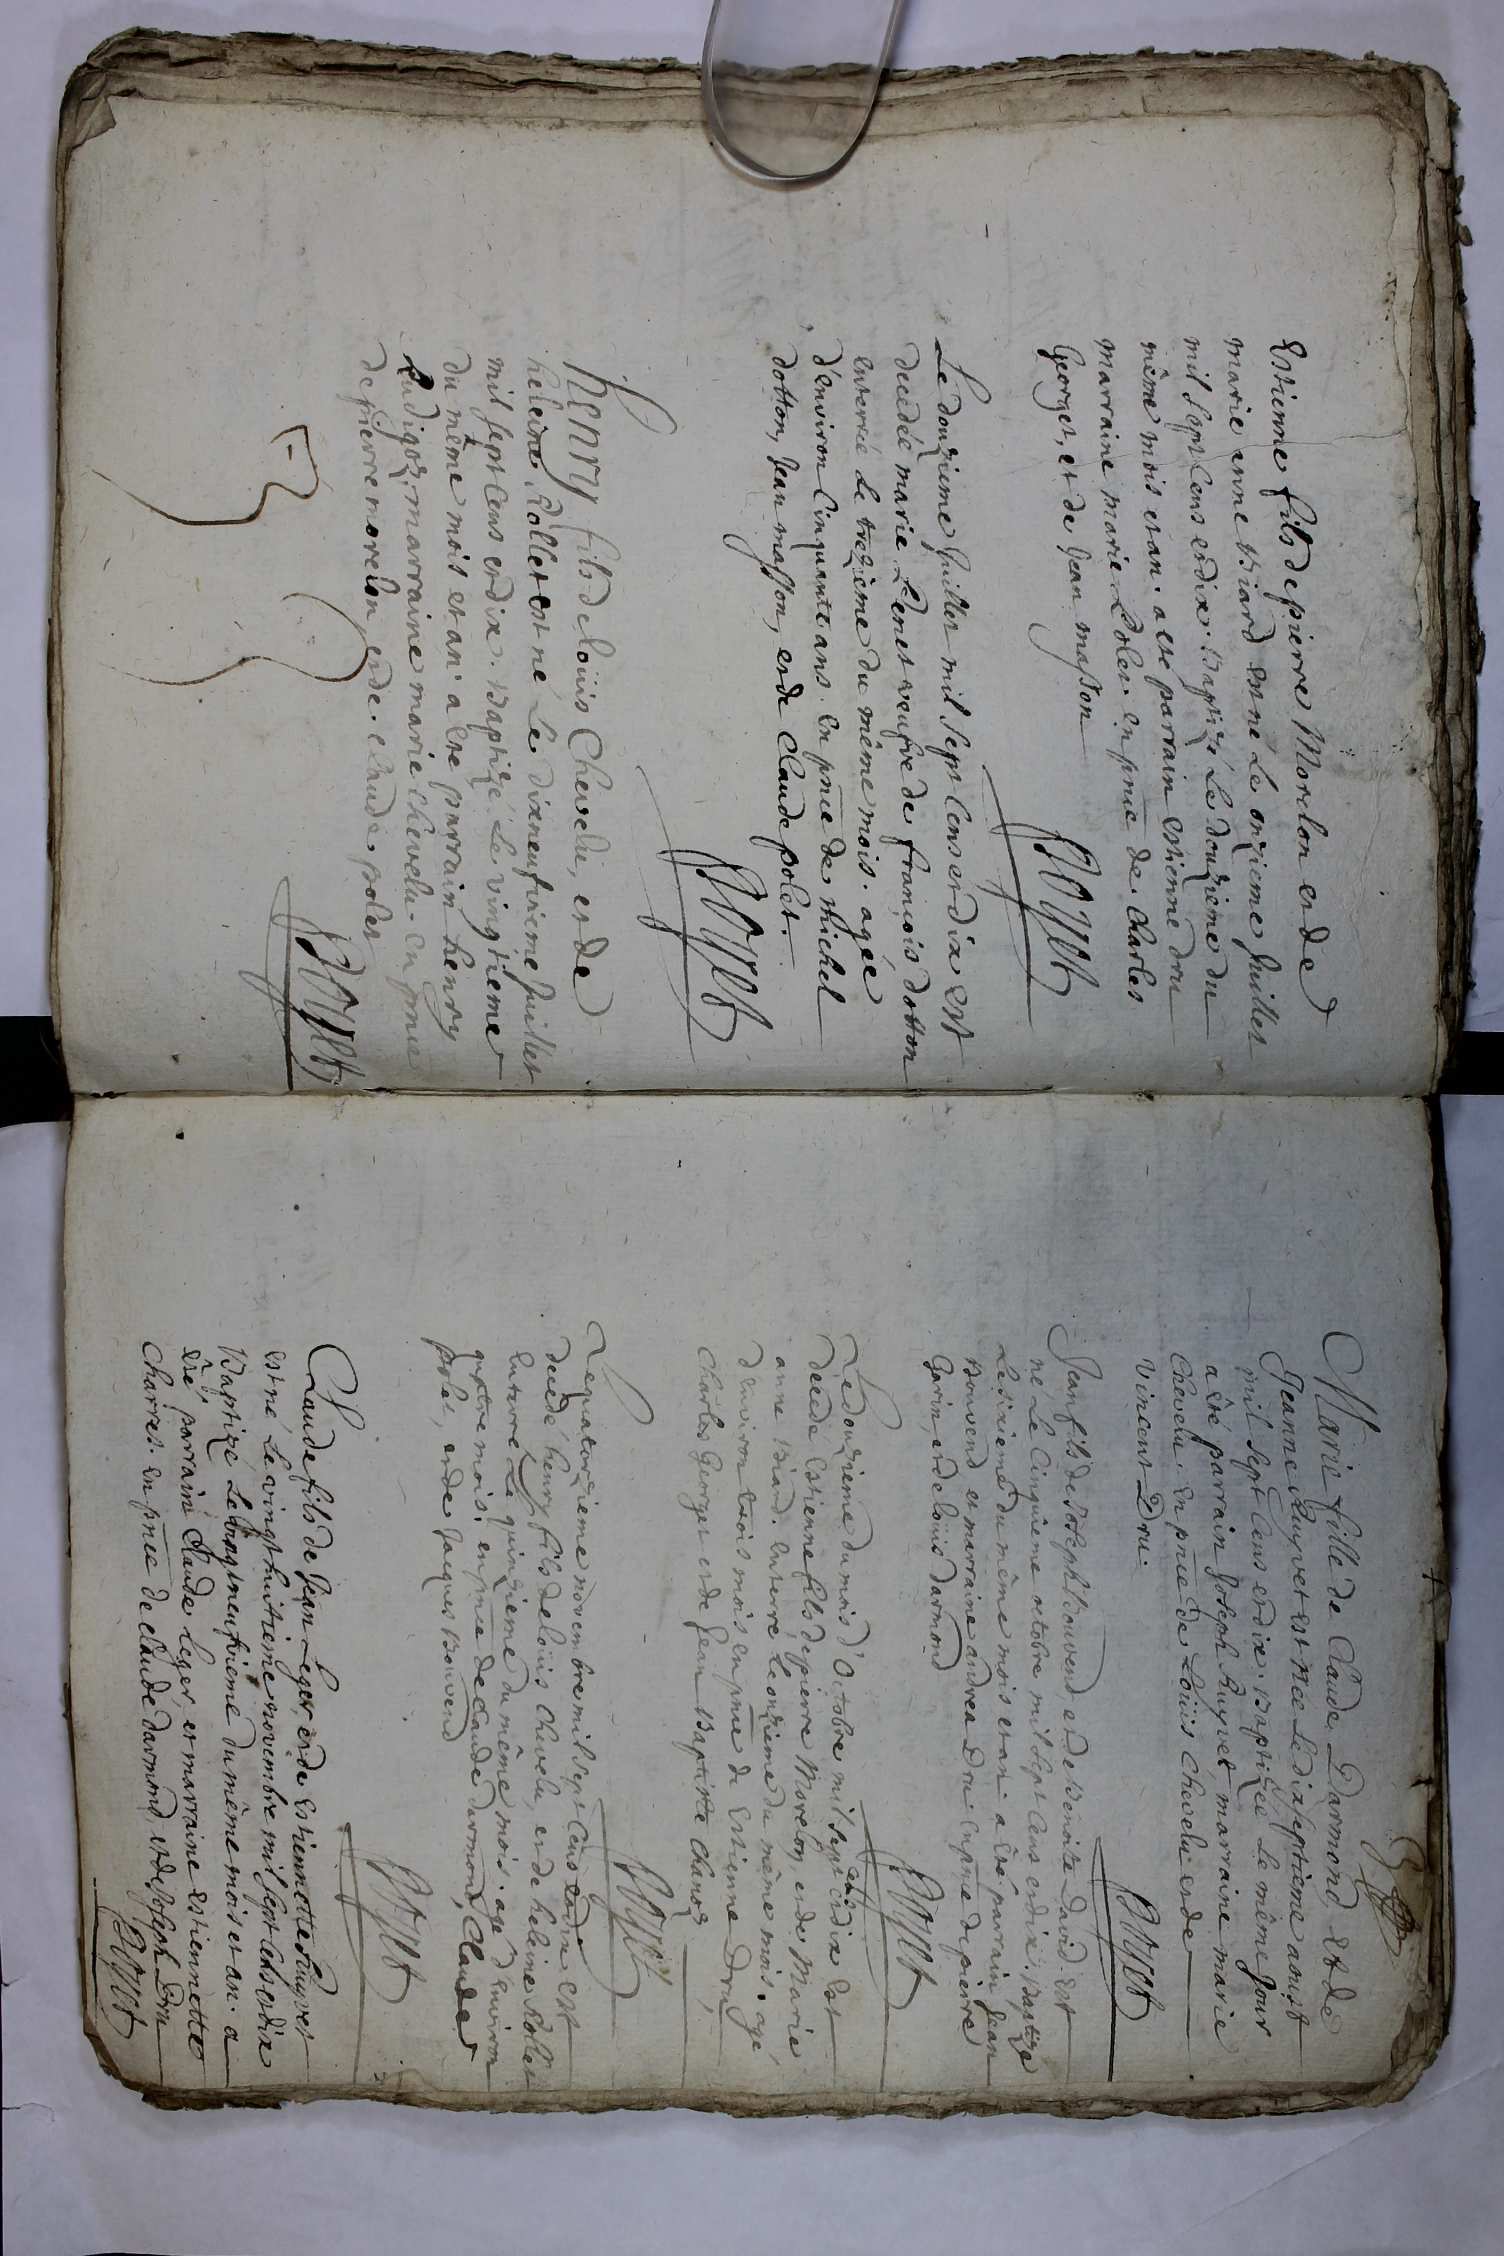 Estienne fils de pierre Morelon et de
marie anne Biard est né le onzieme Juillet
mil sept cens et dix. Baptizé le douzieme du
même mois et an. a esté parrain estienne dru
marraine marie Polet. en pnce de charles
Georget, et de Jean masson
Le douzieme Juillet mil sept cens et dix est
decedée marie venet veufve de françois dotton
enterrée le trezième du même mois. agée
d'environ cinquante ans. en pnce de michel
dotton, Jean masson, et de Claude polet.
henry fils de loüis Chevelu, et de
heleine Pollet est né le dixneufvieme Juillet
mil sept cens et dix. Baptizé le vingtieme
du même mois et an. a esté parrain henry
marraine marie chevelu. en pnce
de pierre morelon, et de claude polet
Marie fille de Claude Darmond, et de
Jeanne Ruyvet est née le dixseptieme aoust
mil sept cens et dix. Baptizée le même jour
a été parrain Joseph Ruyvet, marraine marie
Chevelu. en pnce de Loüis Chevelu et de
Vincent Dru.
Jean fils de Joseph Bouvend, et de Benoite David. est
né le cinquieme octobre mil sept cens et dix. Baptizé
le sixieme du même mois et an. a été parrain Jean
Bouvend et marraine andrea Dru. en pnce de pierre
Garin, et de loüis darmond
Le douzieme du mois d'Octobre mil sept cens et dix est
decedé Estienne fils de pierre Morelon, et de Marie
anne Biard. enterré le onzieme du même mois. agé
d'environ trois mois en pnce de Estienne Dru,
Charles Georget et de Jean Baptiste
Le quatorzieme novembre mil sept cens et dix est
decedé henry fils de loüis Chevelu, et de heleine Pollet
enterré le quinzieme du même mois. agé d'environ
quatre mois. en pnce de Claude darmond, Claude
polet, et de Jaques Bouvend
Claude fils de Jean Leger, et de Estiennette Ruyvet
est né le vingthuitieme novembre mil sept cens et dix
Baptizé le vingtneufvieme du même mois et an. a
été parrain Claude leger, et marraine estiennette
Charret. en pnce de claude darmond, et de Joseph Dru